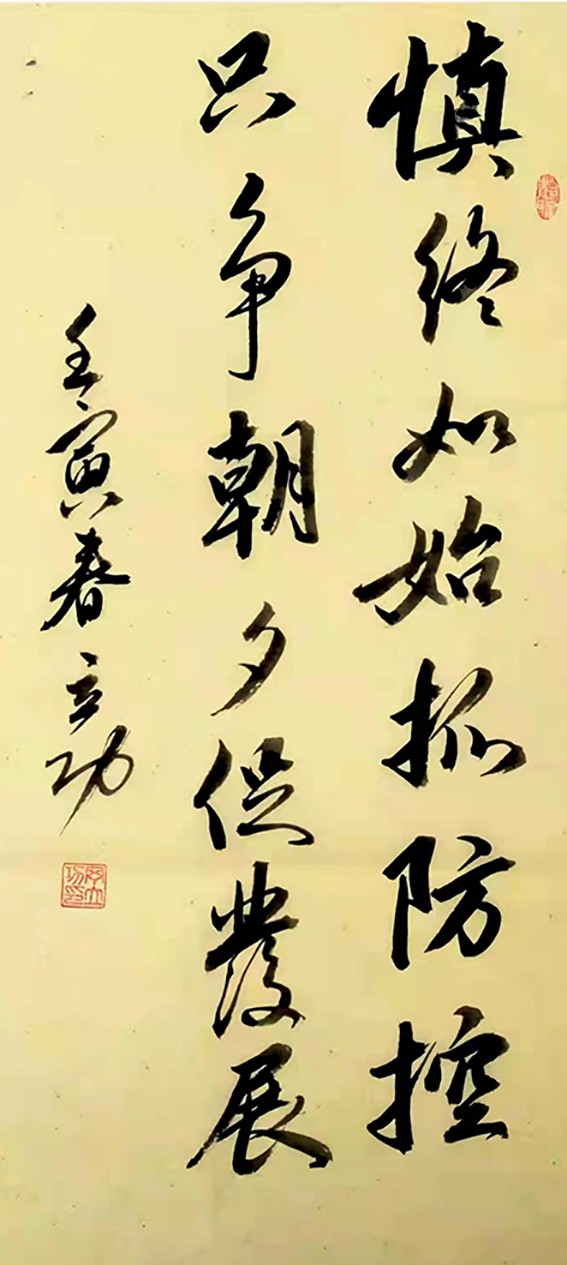 慎终如始抓防控
只争朝夕促發展
壬寅春立功